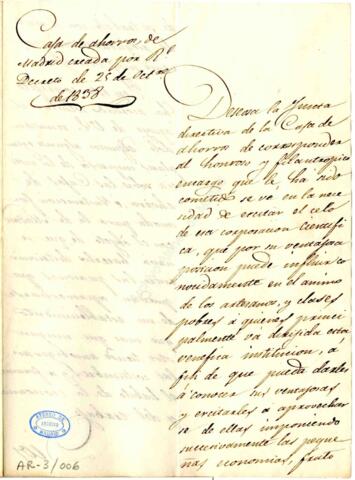 Casa de Ahorros, de
Madrid creada por Rl
Decreto de 25 de Octre
de 1838
Deseosa la Junta
directiva de la Caja de
Ahorros de corresponder
al honroso y filantropico
encargo que le ha sido
cometido se ve en la nece
sidad de escitar el celo
de esa corporacion cientifi
ca, que por su ventajosa
posicion puede influir co
nocidamente en el animo
de los artesanos, y clases
pobres á quienes princi
palmente vá dirijida esta
venefica institucion, á
fin de que pueda darles
á conocer sus ventajas
y escitarles a aprovechar
se de ellas imponiendo
succesivamente las peque
ñas economias, fruto
AR-3/006